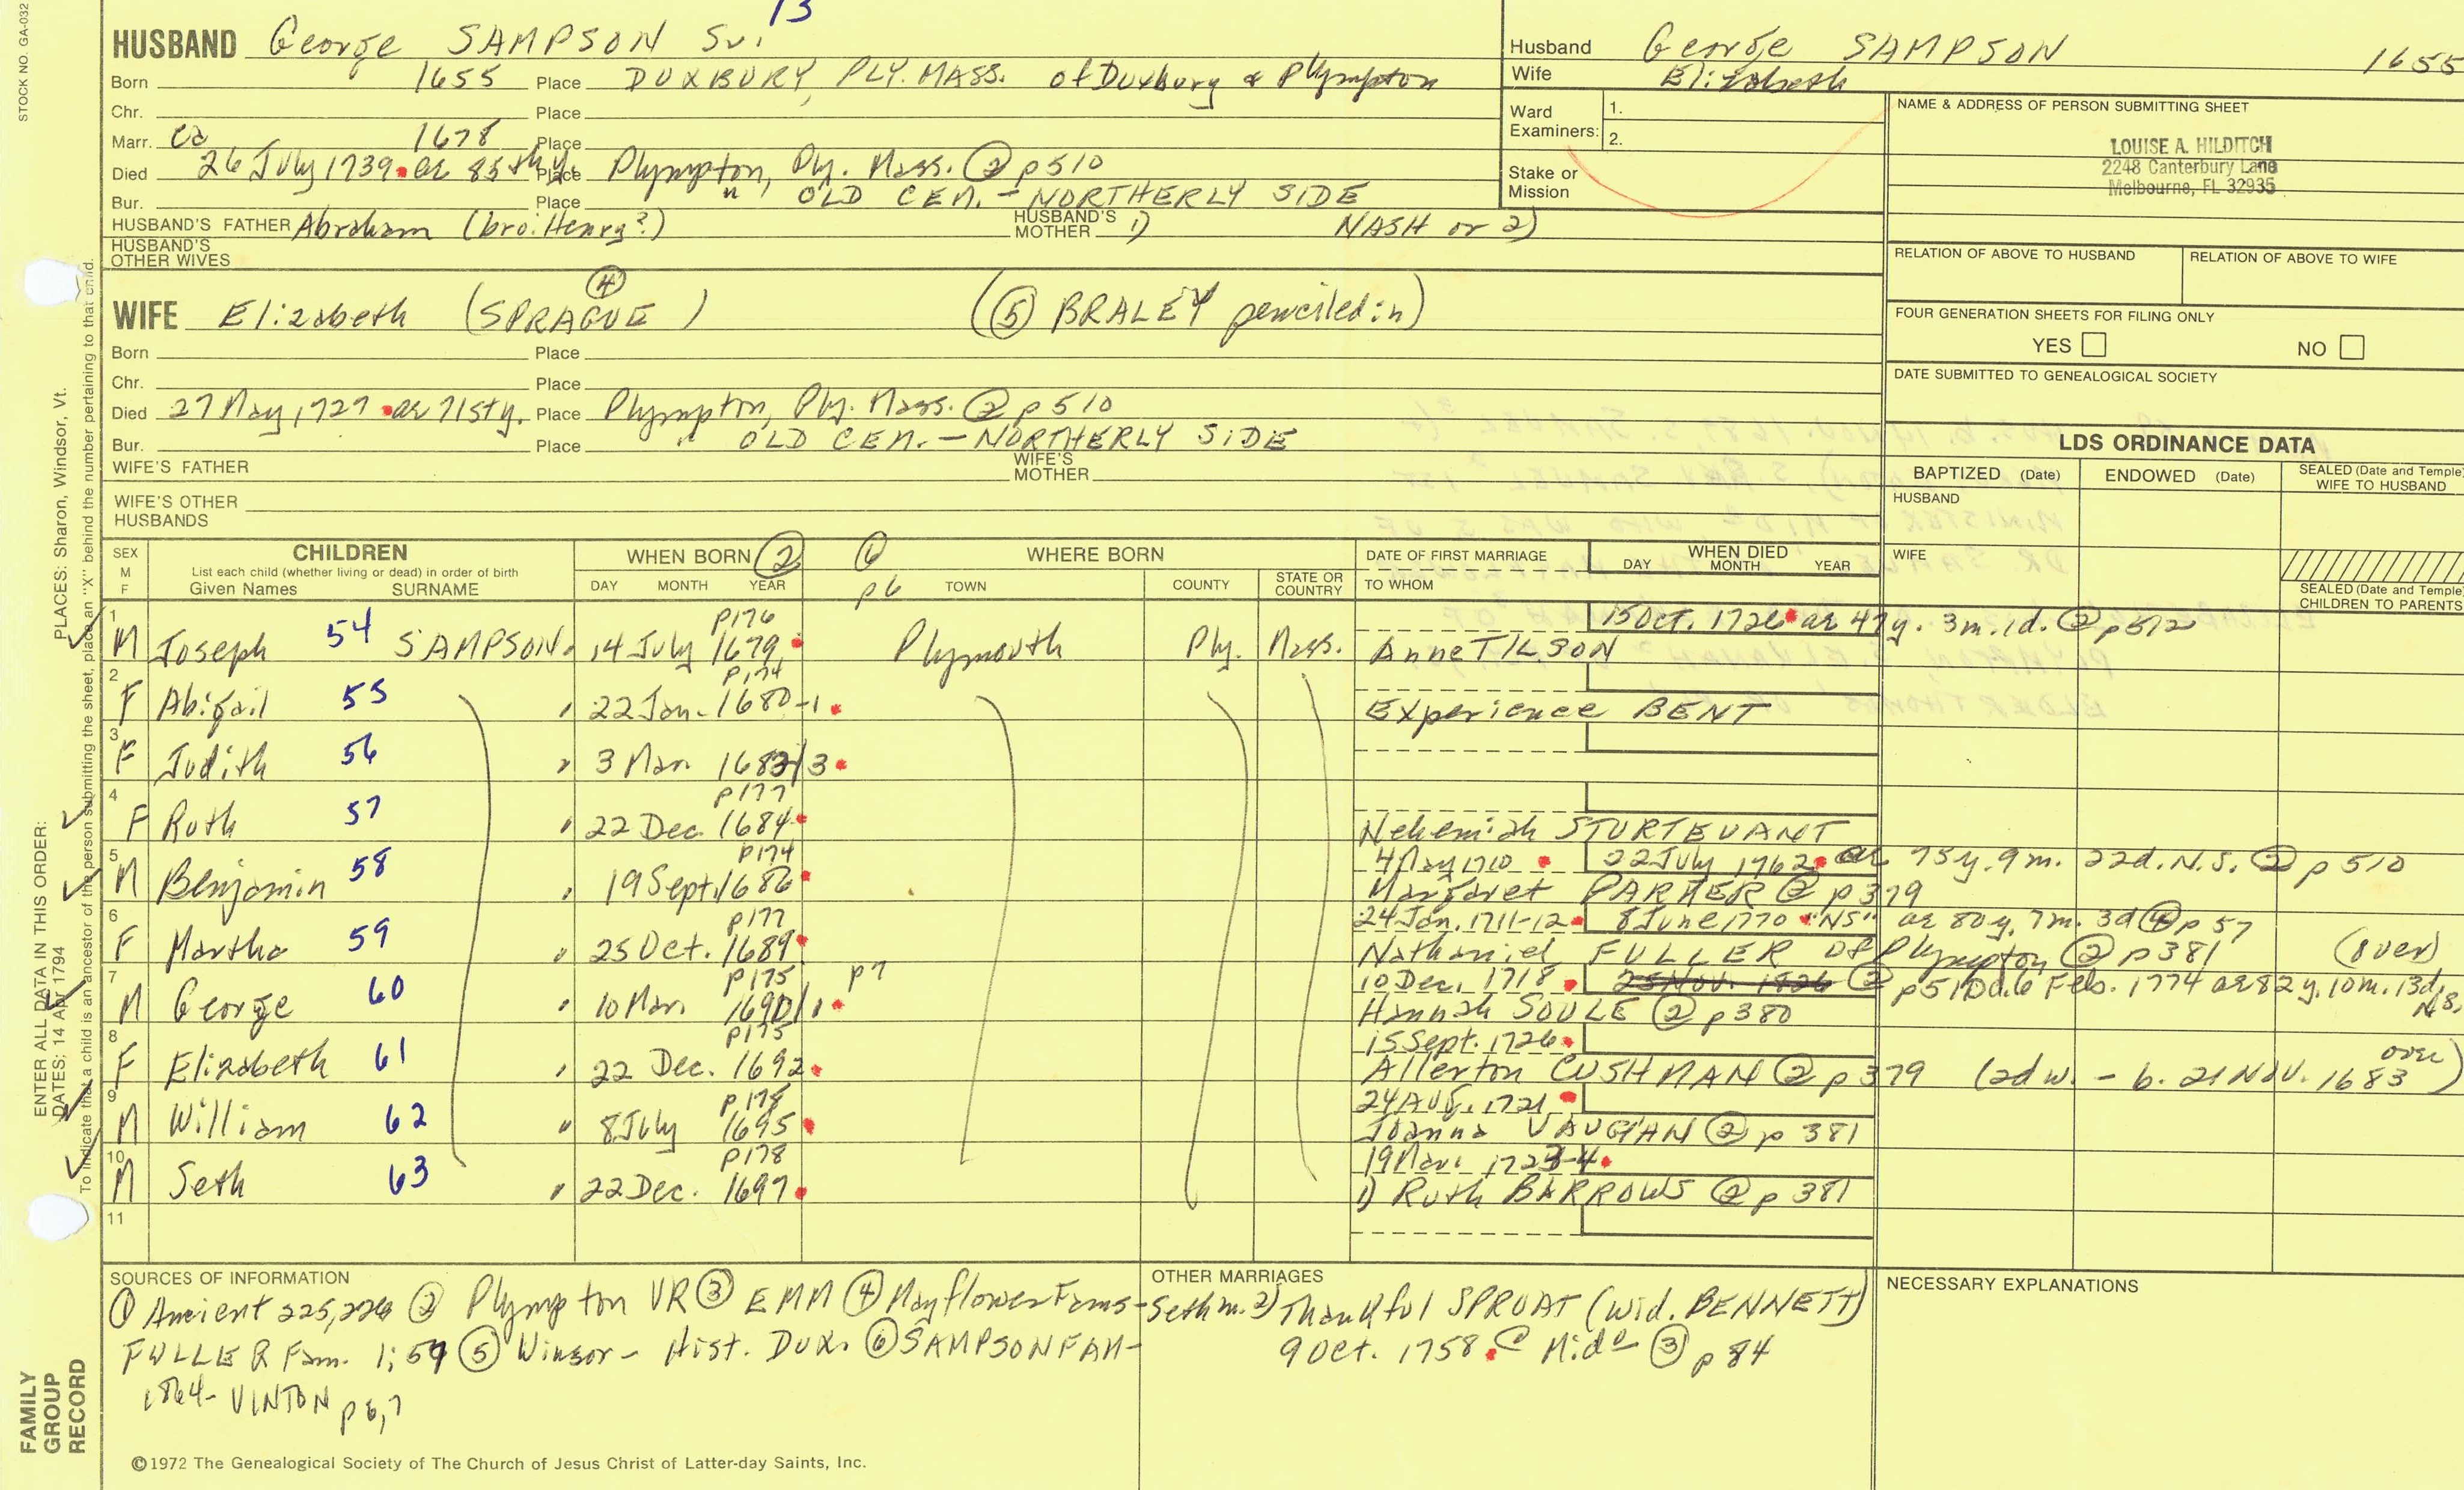 13
HUSBAND George SAMPSON Sr.
Born 1655 Place DUXBURY, PLY. MASS. of Duxbury & Plympton
Chr. Place
Marr. ca 1678 Place
Died 26 July 1739 ae 85th y. Place Plympton, Ply. Mass. ② p510
Bur. Place " OLD CEM. - NORTHERLY SIDE
HUSBAND'S FATHER Abraham (bro: Henry?) HUSBAND'S MOTHER 1) NASH or 2)
HUSBAND'S OTHER WIVES
④
WIFE Elizabeth (SPRAGUE) (⑤ BRALEY penciled in)
Born Place
Chr. Place
Died 27 May 1727 ae 71st y. Place Plympton, Ply. Mass. ② p510
Bur. Place " OLD CEM. - NORTHERLY SIDE
WIFE'S FATHER WIFE'S MOTHER
WIFE'S OTHER HUSBANDS
Husband George SAMPSON 1655
Wife Elizabeth
Ward Examiners: 1.
2.
Stake or Mission
NAME & ADDRESS OF PERSON SUBMITTING SHEET
LOUISE A. HILDITCH
2248 Canterbury Lane
Melbourne, FL 32935
RELATION OF ABOVE TO HUSBAND RELATION OF ABOVE TO WIFE
FOUR GENERATION SHEETS FOR FILING ONLY
YES NO
DATE SUBMITTED TO GENEALOGICAL SOCIETY
LDS ORDINANCE DATA
BAPTIZED (Date) ENDOWED (Date) SEALED (Date and Temple) WIFE TO HUSBAND
HUSBAND
WIFE
SEALED (Date and Temple) CHILDREN TO PARENTS
SEX M F CHILDREN List each child (whether living or dead) in order of birth Given Names SURNAME
WHEN BORN ② DAY MONTH YEAR ⑥ p6 WHERE BORN TOWN COUNTY STATE OR COUNTRY
DATE OF FIRST MARRIAGE TO WHOM WHEN DIED DAY MONTH YEAR
1 p176 15 Oct. 1726 ae 47y. 3m. 1d. ② p512
M Joseph 54 SAMPSON 14 July 1679 Plymouth Ply. Mass. Anne TILSON
2 p174
F Abigail 55 " 22 Jan. 1680-1 Experience BENT
3
F Judith 56 " 3 Mar. 1682/3
4 p177
F Ruth 57 " 22 Dec. 1684 Nehemiah STURTEVANT
5 p174 4 May 1710 22 July 1762 ae 75y. 9m. 22d. N.S. ② p510
M Benjamin 58 " 19 Sept. 1686 Margaret PARKER ② p379
6 p177 24 Jan. 1711-12 8 June 1770 "NS" ae 80y. 7m. 3d ④ p57
F Martha 59 " 25 Oct. 1689 Nathaniel FULLER of Plympton ② p381 (over)
7 p175 p7 10 Dec. 1718 25 Nov. 1826 ② p510 d. 6 Feb. 1774 ae 82y. 10m. 13d. N.S.
M George 60 " 10 Mar. 1690/1 Hannah SOULE ② p380
8 p175 15 Sept. 1726
F Elizabeth 61 " 22 Dec. 1692 Allerton CUSHMAN ② p379 (2d w. - b. 21 Nov. 1683 over)
9 p178 24 Aug. 1721
M William 62 " 8 July 1695 Joanna VAUGHAN ② p 381
10 p178 19 Mar. 1723-4
M Seth 63 " 22 Dec. 1697 1) Ruth BARROWS ② p 381
11
SOURCES OF INFORMATION
① Ancient 225,226 ② Plympton VR ③ EMM ④ Mayflower Fams-
FULLER Fam. 1:57 ⑤ Winsor - Hist. Dux. ⑥ SAMPSON FAM-
1864- VINTON p 6,7
OTHER MARRIAGES
Seth m. 2) Thankful SPROAT (wid. BENNETT)
9 Oct. 1758 @ Mido ③ p 84
NECESSARY EXPLANATIONS
©1972 The Genealogical Society of The Church of Jesus Christ of Latter-day Saints, Inc.
STOCK NO. GA-032
PLACES: Sharon, Windsor, Vt.
To indicate that a child is an ancestor of the person submitting the sheet, place an "X" behind the number pertaining to that child.
ENTER ALL DATA IN THIS ORDER:
DATES: 14 Apr 1794
FAMILY GROUP RECORD